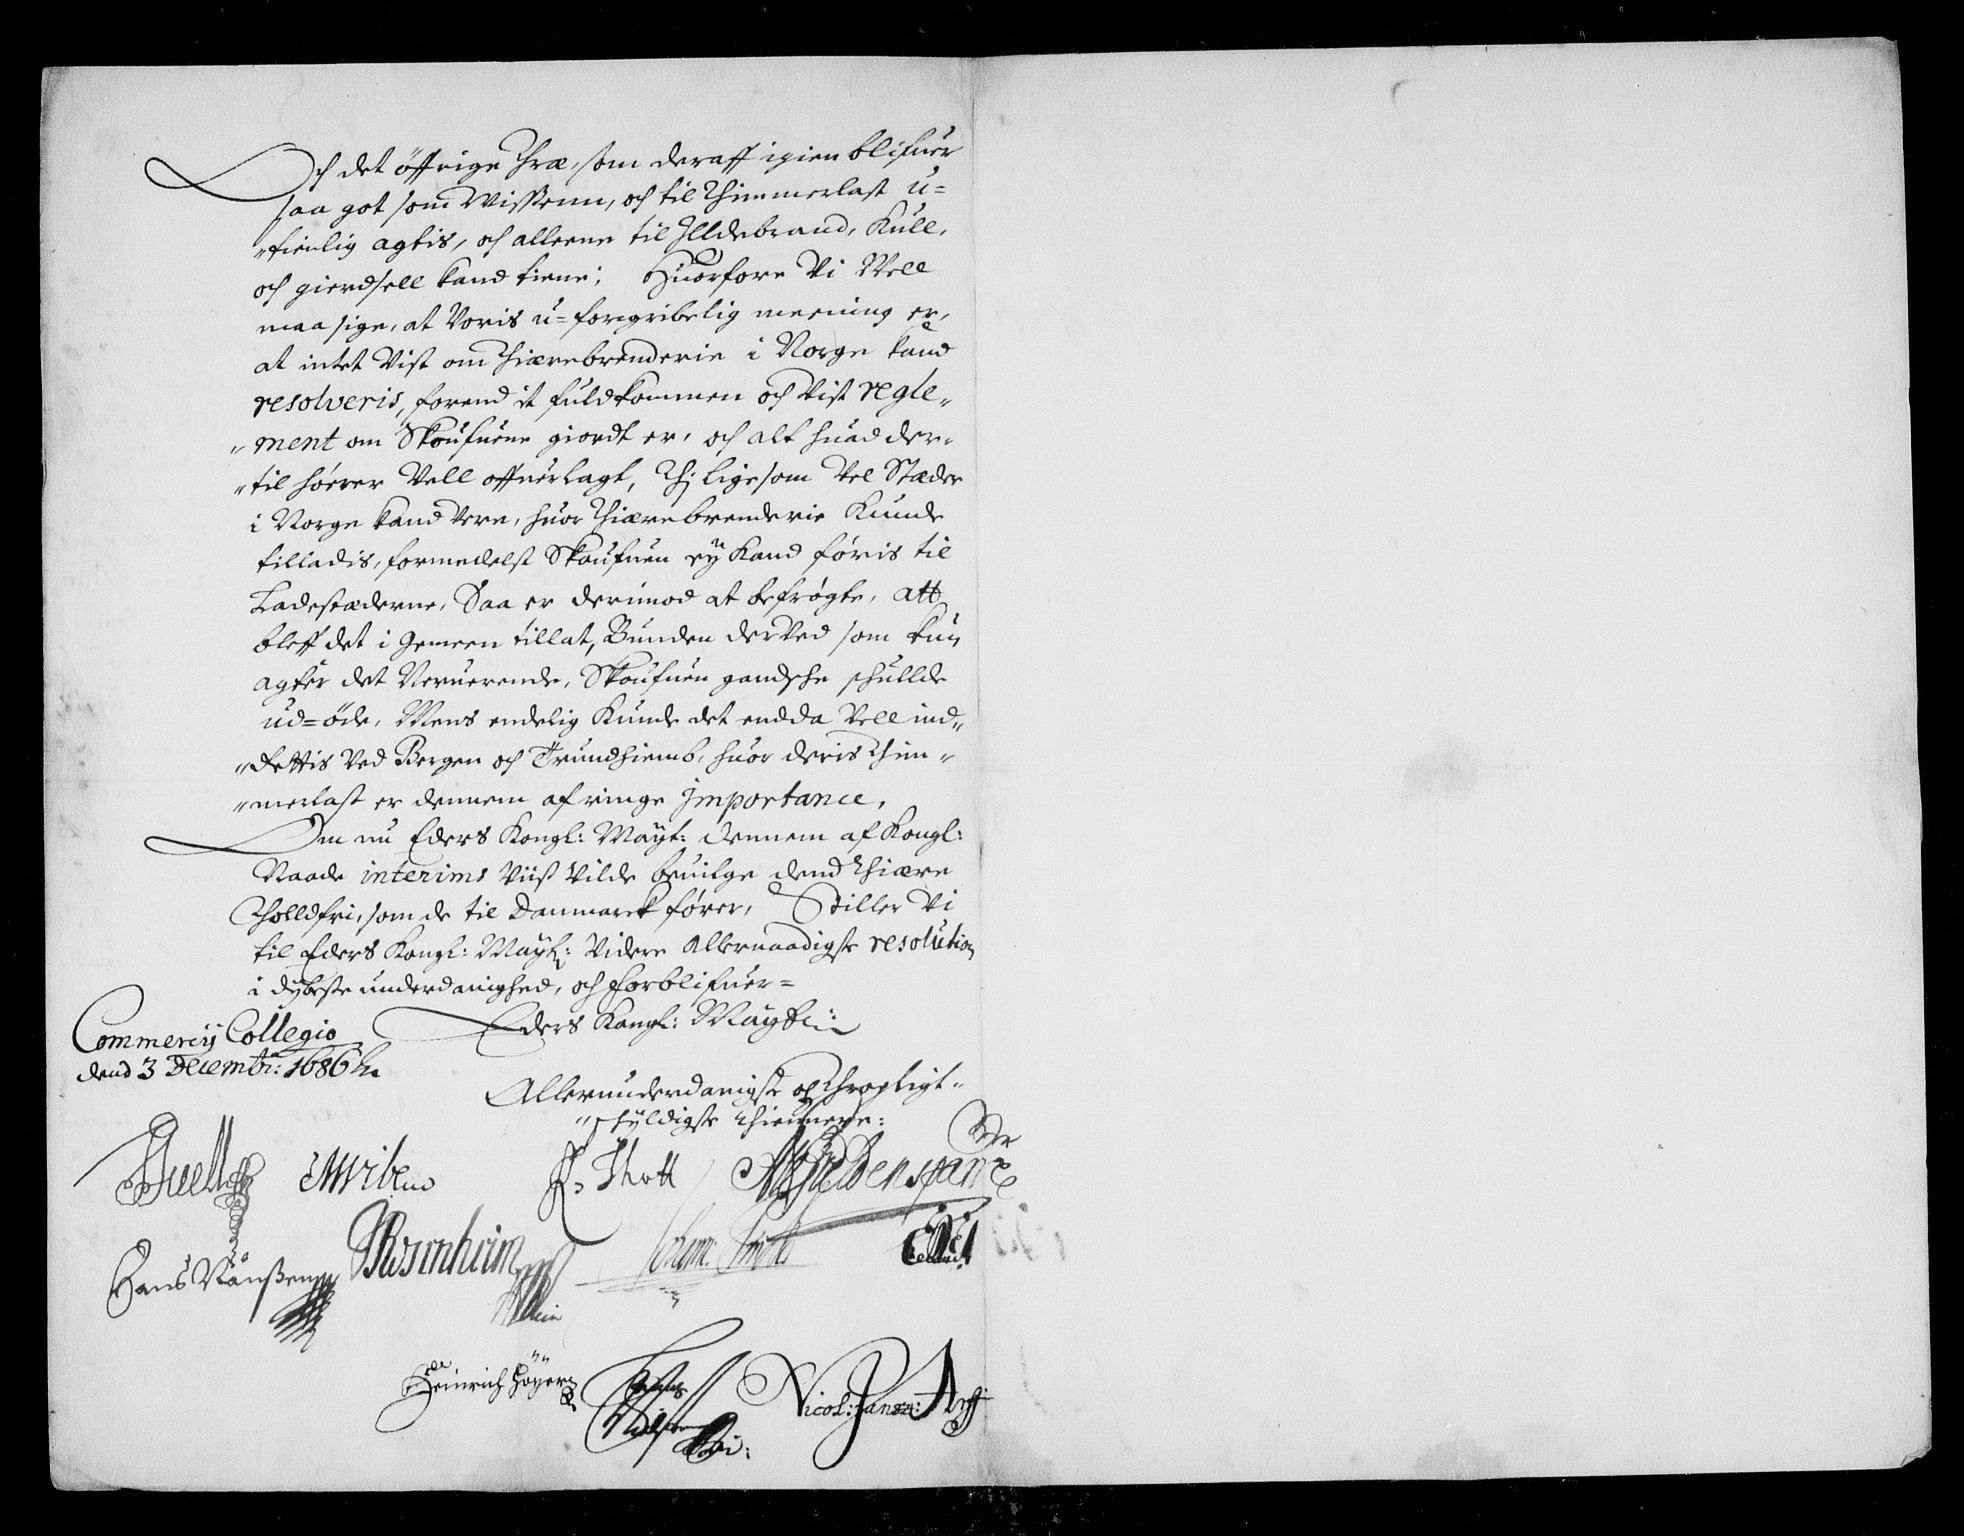 Och det öffrige Træ, som deraff igien blifuer
saa got som Wissenn, och til Thimmerlast u=
"tienlig agtis, och alleene til Jlldebrand, Kull,
och gierdsell kand tiene; Huorfore Vi Vell
maa sige, at Voris u=foregribelig meening er,
at intet Vist om Thiærebrenderie i Norge kand
resolveris, forend it fuldkommen och Vist regle"
"ment om Skoufuene giordt er, och alt huad der"
"til hörer Vell offuerlagt, Thj ligesom Vel Stæder
i Norge kand Vere, huor Thiærebrenderie Kunde
tilladis, formedelst Skoufuen eÿ Kand föris til
Ladestæderne, Saa er derimod at befrögte, att
bleff det i Gemeen tillat, Bunden derVed som kun
agter det Neruerende, Skoufuen gandsche schullde
ud=öde, Mens endelig Kunde det endda Vell ind"
"rettis Ved Bergen och Trundhiemb, huor deris Thim"
"merlast er dennem af ringe Jmportance,
Om nu Eders Kongl: Mayt: dennem af Kongl:
Naade interims Viis Vilde beuilge dend Thiære
Tholldfri, som de til Danmarck förer, Stiller Vi
til Eders Kongl: Mayt: Videre Allernaadigste resolution
i dybeste underdanighed, och forblifuer=
Eders Kongl: Maytts:
Commercij Collegio
dend 3 Decembr: 1686
Allerunderdanigste og Thropligt"
"schyldigste Thiennere:
JJuell EMWibe P. Skott
Hans Nanssen Rosenheim
Heinrich Höyer Nicol: Jansz: Arff